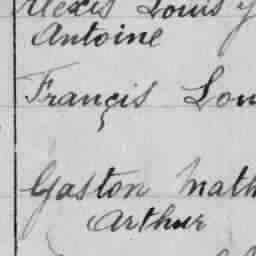 Alexis Louis
Antoine
Français Lou
Gaston Math
Arthur